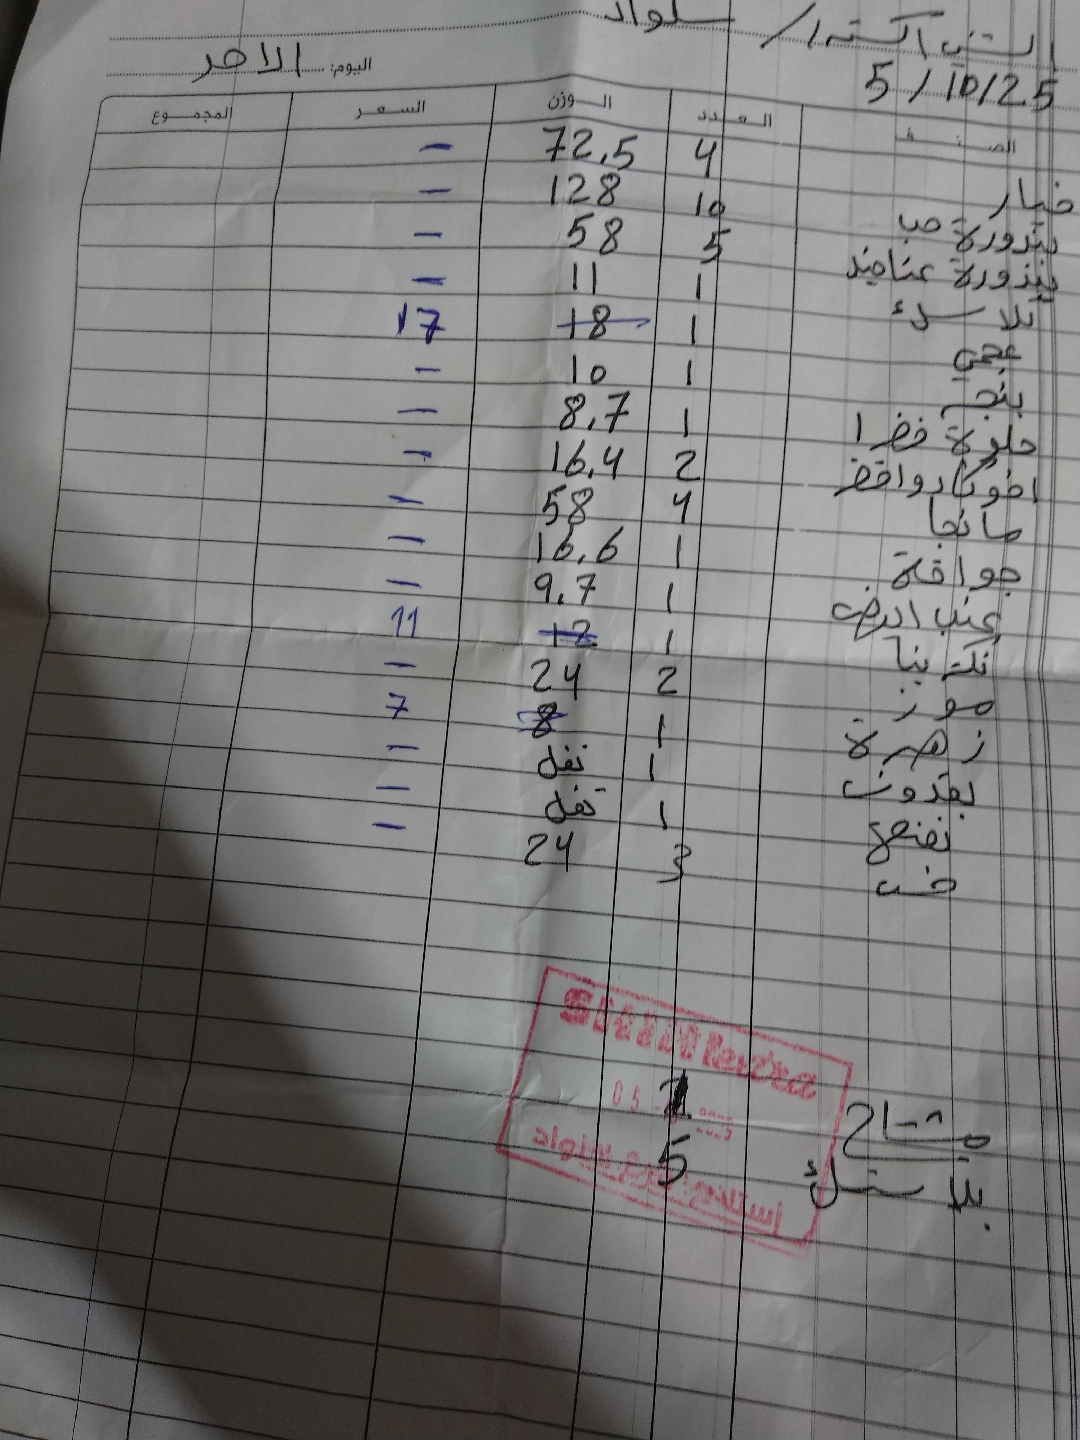 سلواد
5/10/25
اليوم: الاحد
الصنف العدد الوزن السعر المجموع
خيار 4 72.5 -
بندورة حب 10 128 -
بندورة عناقيد 5 58 -
1 11 -
عجي 1 18 17
بنجر 1 10 -
حلوة خضرا 1 8.7 -
افوكادو 2 16.4 -
مانجا 4 58 -
جوافة 1 16.6 -
عنب 1 9.7 -
1 12 11
موز 2 24 -
زهرة 1 8 7
بقدونس 1 نفل -
نعنع 1 نفل -
خس 3 24 -
1
بلاستيك 5